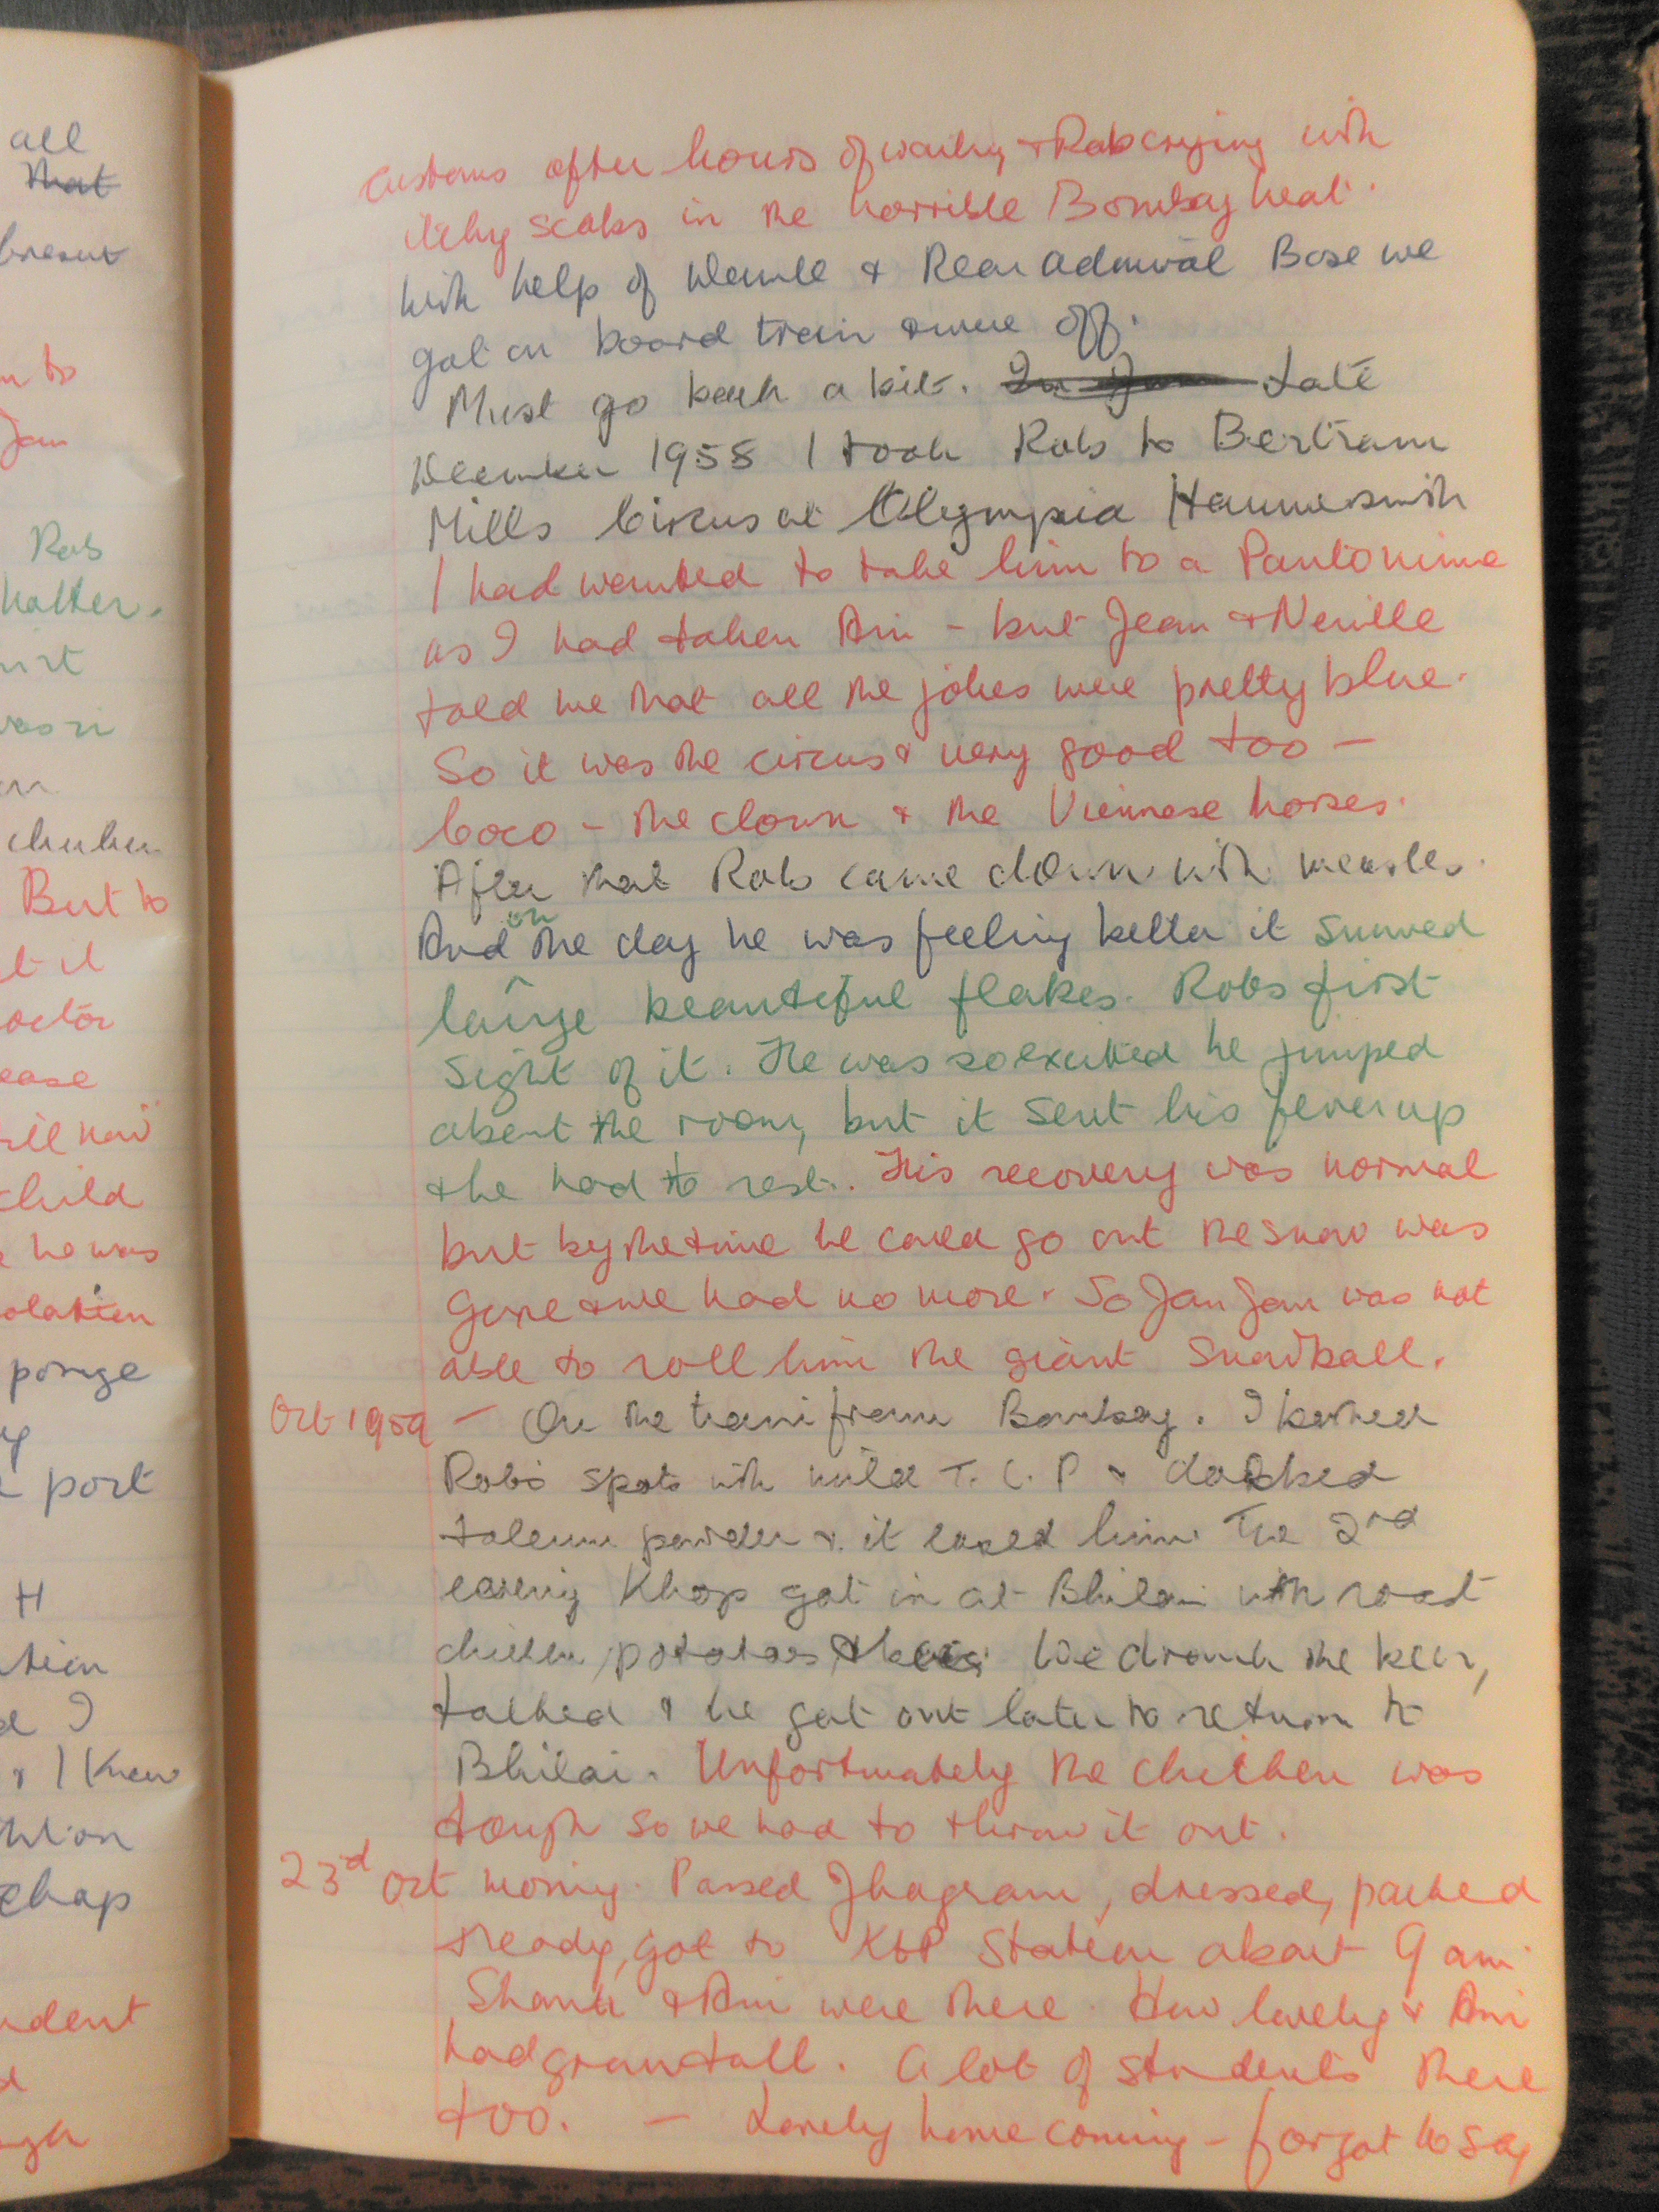 all
that
present
Jan
Rob
But to
doctor
child
he was
sponge
port
H
I
& I knew
chap
customs after hours of waiting & Rob crying with
itchy scabs in the horrible Bombay heat.
With help of & Rear Admiral Bose we
got on board train & were off.
Must go back a bit. Late
December 1958 I took Rob to Bertram
Mills Circus at Olympia Hammersmith
I had wanted to take him to a Pantomime
as I had taken Ani - but Jean & Neville
told me that all the jokes were pretty blue.
So it was the circus & very good too -
Coco - the clown & the Viennese horses.
After that Rob came down with measles.
And on the day he was feeling better it snowed
large beautiful flakes. Robs first
sight of it. He was so excited he jumped
about the room, but it sent his fever up
& he had to rest. His recovery was normal
but by the time he could go out the snow was
gone & we had no more. So Jan Jan was not
able to roll him the giant snowball.
Oct 1959 - On the train from Bombay. I bathed
Rob's spots with mild T.C.P & dabbed
talcum powder & it eased him. The 2nd
evening Khop got in at Bhilai with roast
chicken, potatoes & beer. We drank the beer,
talked & he got out later to return to
Bhilai. Unfortunately the chicken was
tough so we had to throw it out.
23rd Oct morning. Passed Jhagram, dressed, packed
& ready, got to KGP Station about 9 am
& Ani were there. How lovely & Ani
had grown tall. A lot of students there
too. - Lovely home coming - forgot to say